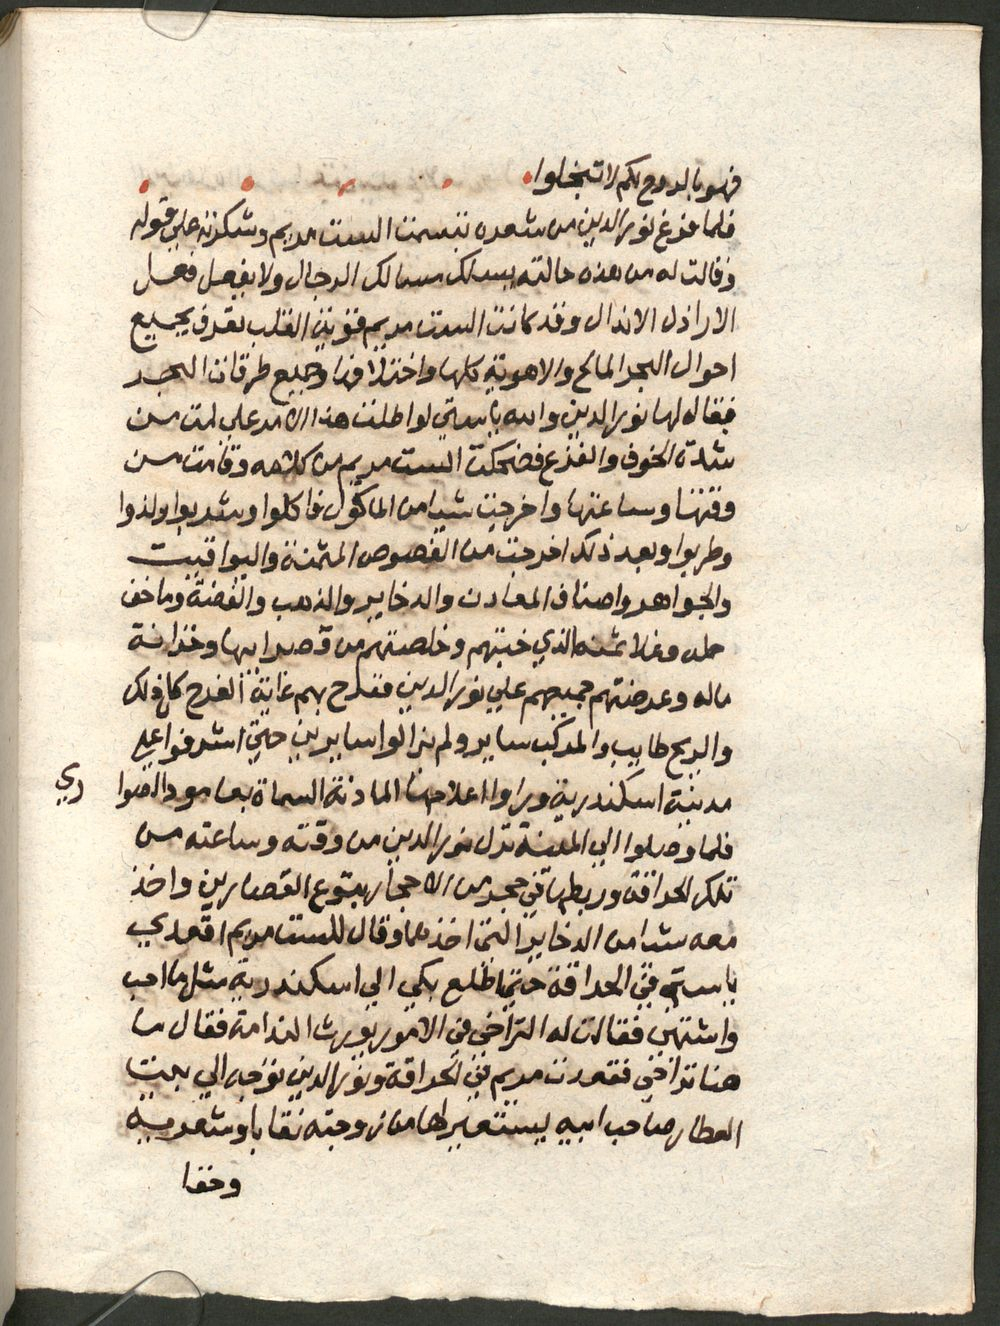 فهو بالروح لكم لا تبخلوا
فلما فرغ نور الدين من شعره تبسمت الست مريم وشكرته علي قوله
وقالت له من هذه حالته يسلك مسالك الرجال ولا يفعل فعل
الاراذل الاندال وقد كانت الست مريم قوية القلب تعرف بجميع
احوال البحر المالح والاهوية كلها واختلافها وجميع طرقات البحر
فقال لها نور الدين والله ياستي لو اطلت هذا الامر علي لمت من
شدة الخوف والفزع فضحكت الست مريم من كلامه وقامت من
وقتها وساعتها واخرجت شيا من الماكول فاكلوا وشربوا ولذوا
وطربوا وبعد ذلك اخرجت من الفصوص المثمنة واليواقيت
والجواهر واصناف المعادن والدخاير والذهب والفضة وما خف
حمله وغلا ثمنه الذي خبتهم وخلصتهم من قصر ابيها وخزانة
ماله وعرضتهم جميعهم علي نور الدين ففرح بهم غاية الفرح كل ذلك
والريح طايب والمركب ساير ولم يزالوا سايرين حتي اشرفوا علي
مدينة اسكندرية وراوا اعلامها المادنة السماة بعامود الصوا
ري
فلما وصلوا الي المدينة نزل نور الدين من وقته وساعته من
تلك الحراقة وربطها في حجر من الاحجار بتوع القصارين واخذ
معه شيا من الدخاير التي اخذها وقال للست مريم اقعدي
ياستي في الحراقة حتي اطلع بكي الي اسكندرية مثل ما احب
واشتهي فقالت له التراخي في الامور يورث الندامة فقال ما
هنا تراخي فقعدت مريم في الحراقة ونور الدين توجه الي بيت
العطار صاحب ابيه يستعير لها من زوجته نقابا وشعرية
وخفا